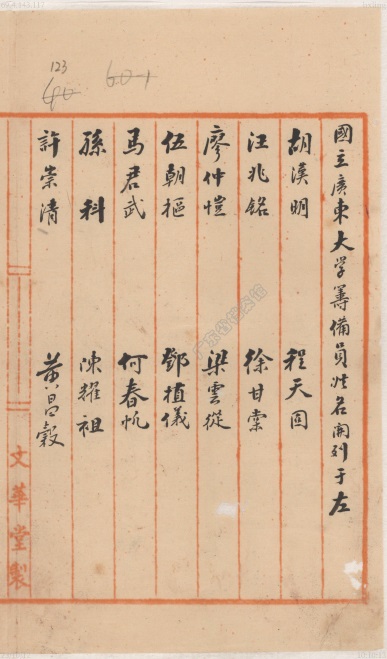 國立廣東大学籌備員姓名開列于左
胡漢明 程天固
汪兆銘 徐甘棠
廖仲愷 梁雲從
伍朝樞 鄧植儀
馬君武 何春帆
孫科 陳耀祖
許崇清 黃昌穀
文華堂製
123
60-1